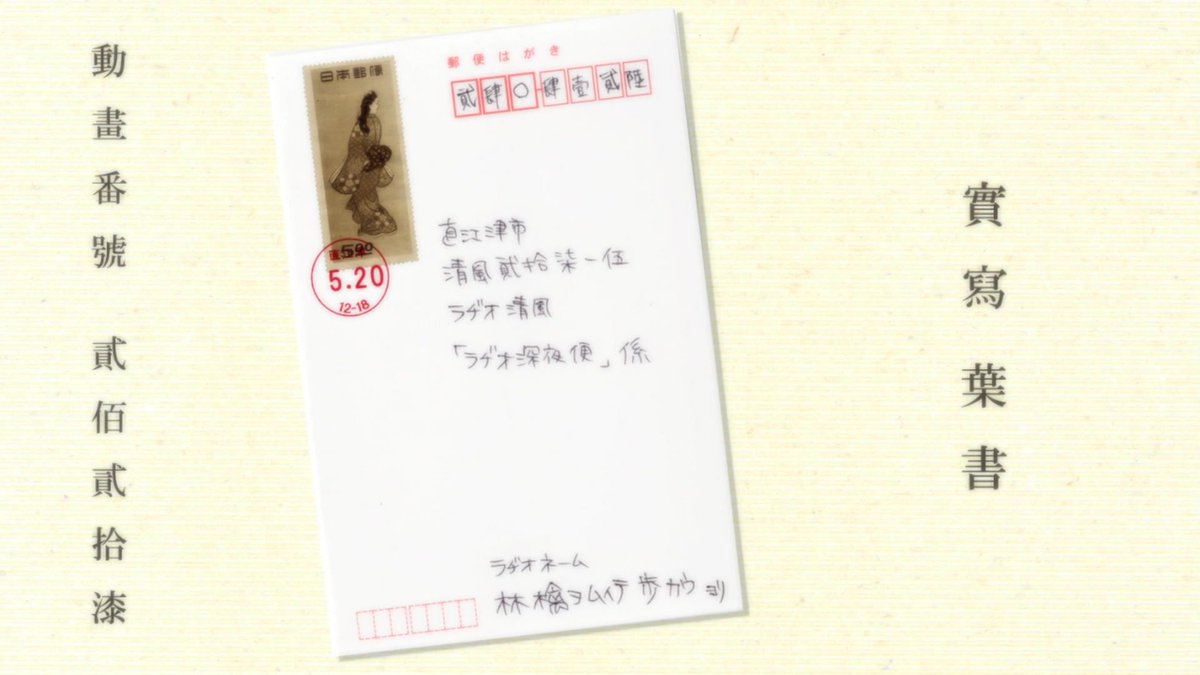 實寫葉書
日本郵便
500
直江津
5.20
12-18
郵便はがき
貳肆〇肆壹貳陸
直江津市
清風貳拾柒ー伍
ラヂオ清風
「ラヂオ深夜便」係
ラヂオネーム
林檎ヲムイテ歩カウヨリ
動畫番號 貳佰貳拾漆